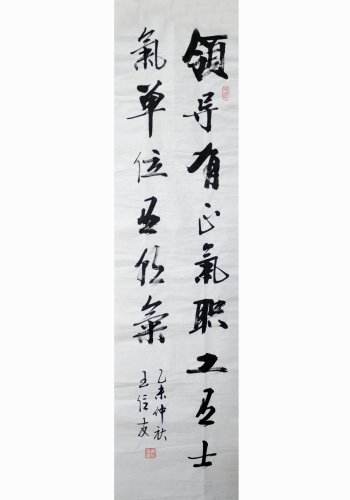 領导有正氣职工有士
氣单位有氣
乙未仲秋
王信友